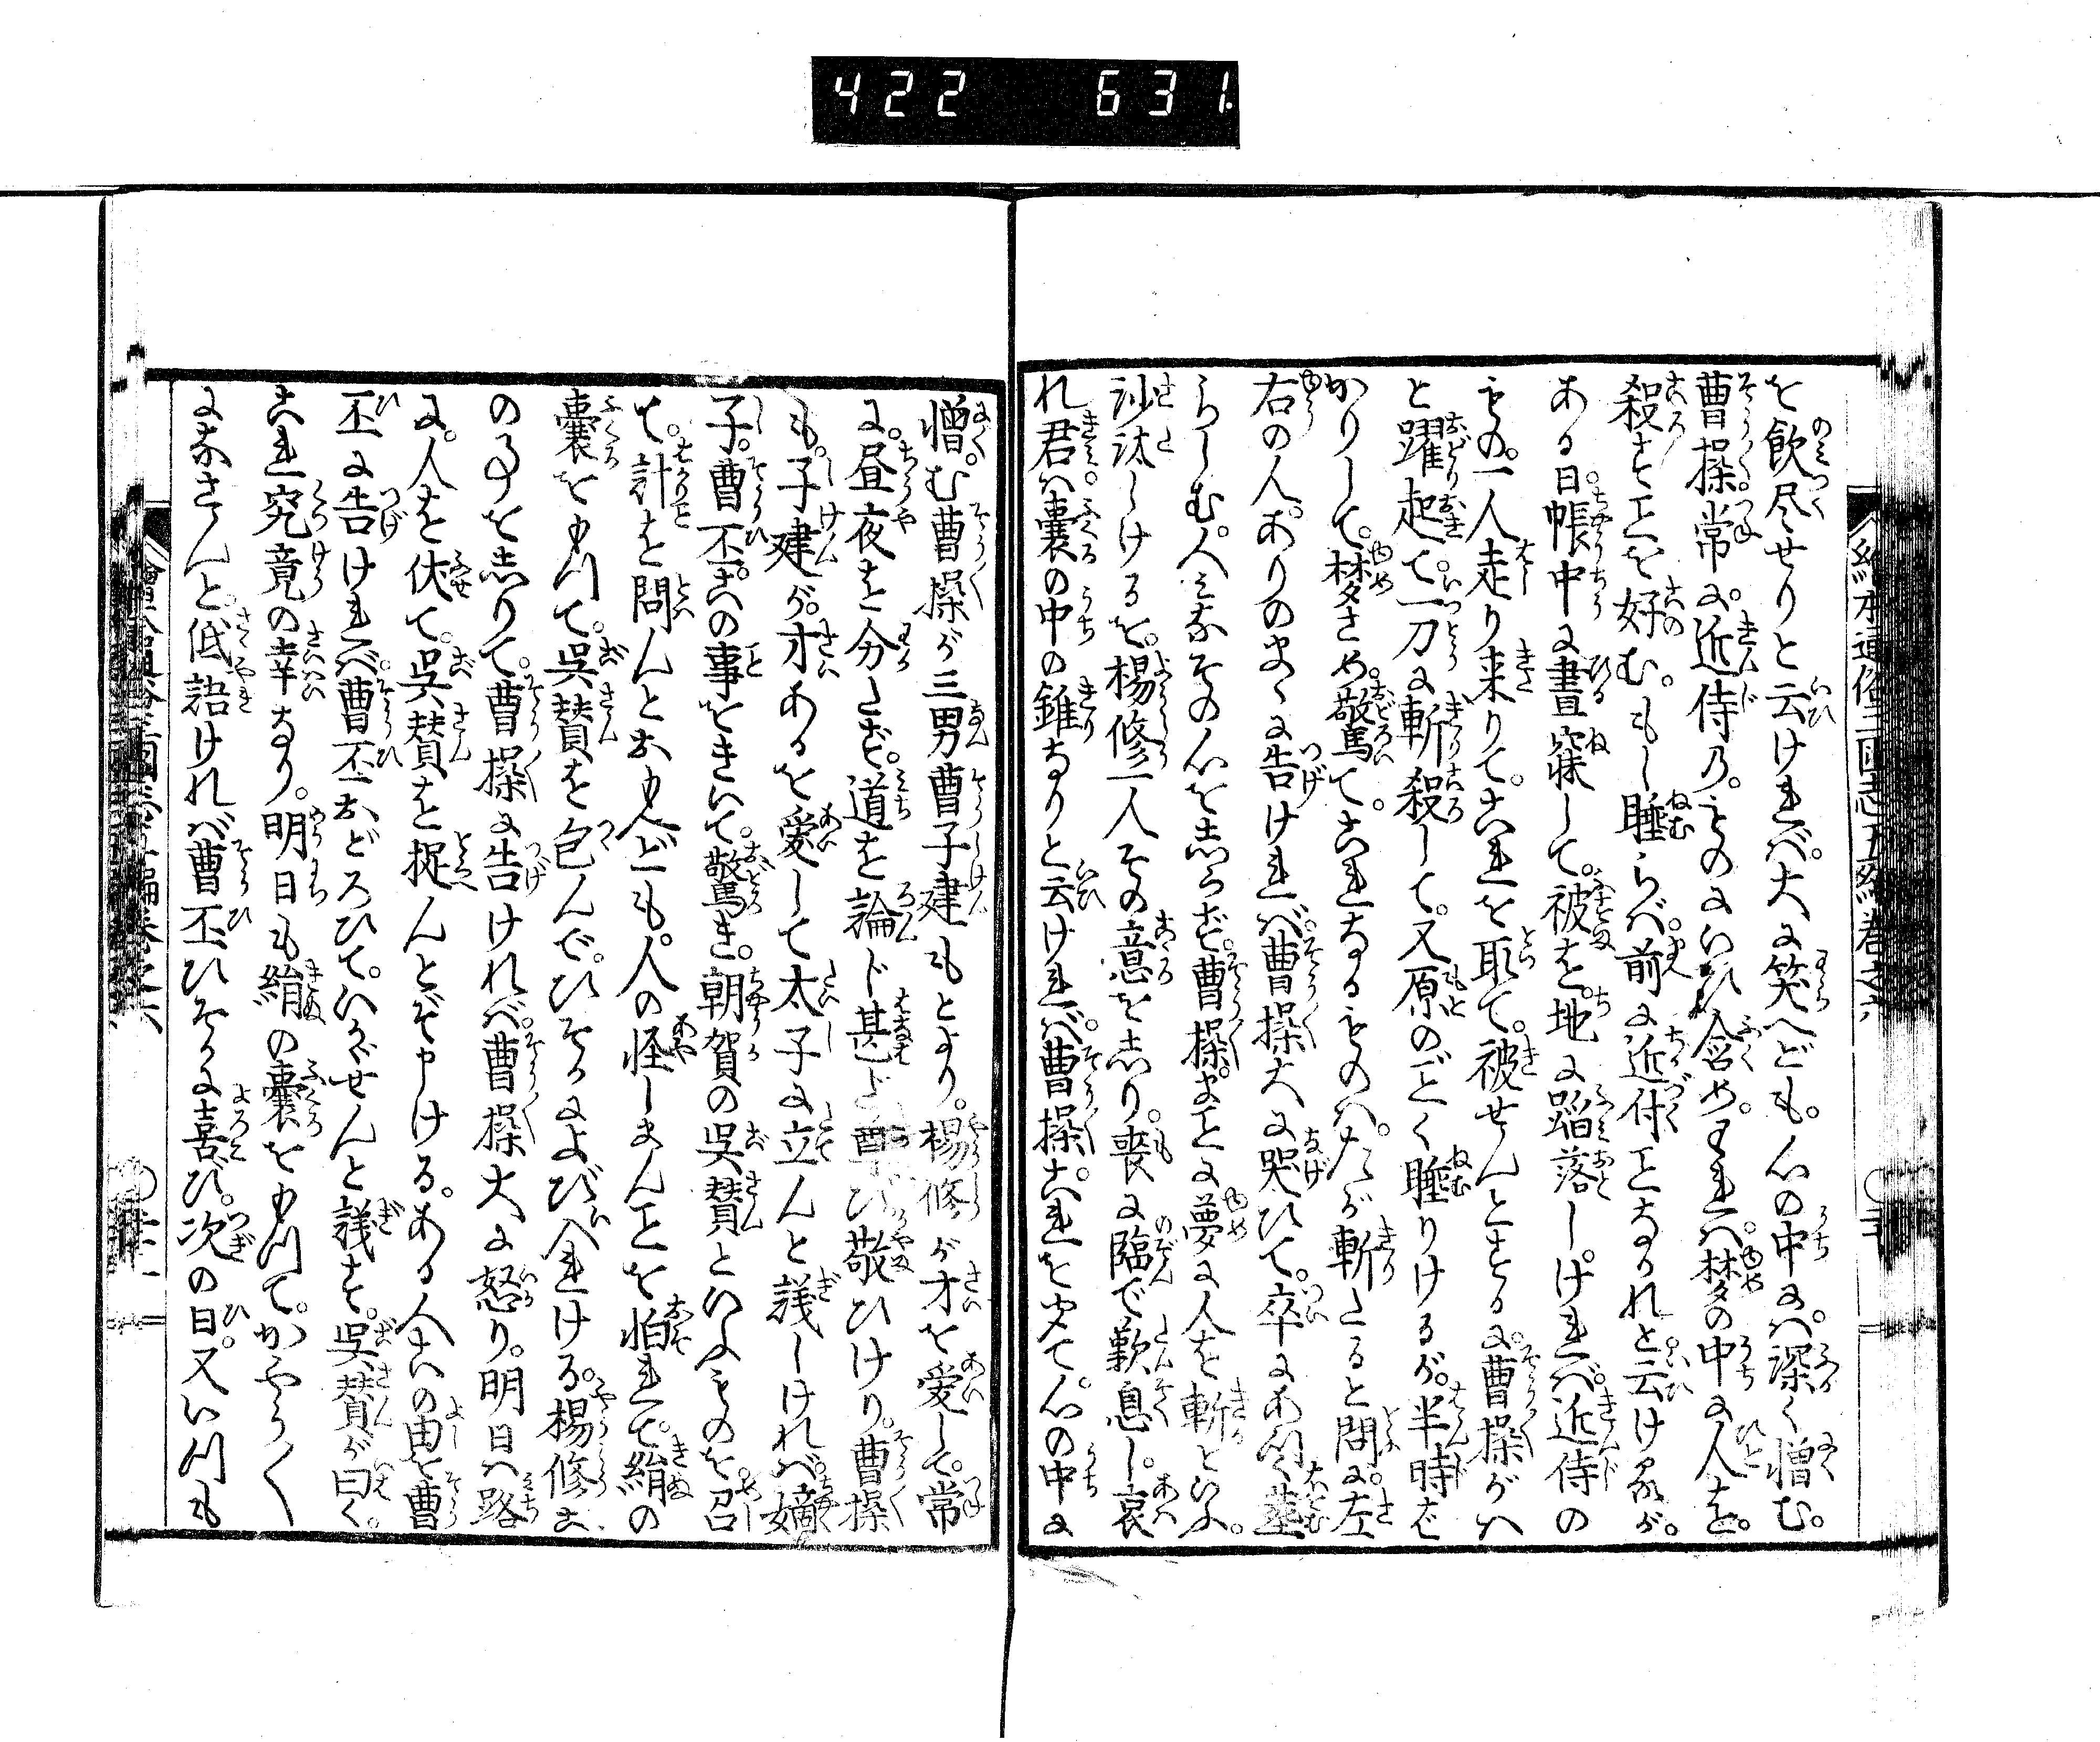 422 631
を飲尽せりと云ければ。大に笑へども。心の中には。深く憎む。
曹操。常に。近侍の。ものにいひ含め。われは。夢の中に人を。
殺すことを好む。もし睡らば。前に近付ことなかれと云けるが。
ある日。帳中に晝寐して。被を。地に蹈落しければ。近侍の
もの。一人走り来りて。これを取て。被せんとするに。曹操がは
と躍起て。一刀に斬殺して。又原のごとく睡りけるが。半時ば
かりして。夢さめ。驚て。これなるものは。たが斬たると問に。左
右の人。ありのまゝに告ければ。曹操大に哭ひて。卒にあつく葬
らしむ。人みなその心をしらず。曹操まことに夢に人を斬といふ。
沙汰しけるを。楊修一人その意をしり。喪に臨で歎息し。哀
れ君は嚢の中の錐なりと云ければ。曹操。これを聞て。心の中に
憎む。曹操が三男曹子建もとより。楊修が才を愛して。常
に。昼夜を分たず。道を論じ甚ど尊び敬ひけり。曹操
も。子建が。才あるを愛して太子に立んと議しければ。嫡
子。曹丕。この事をきいて。驚き。朝賀の呉賛といふものを。召
て。計を問んとおもへども。人の怪しまんことを怕れて。絹の
嚢をもつて。呉賛を包んで。ひそかによび入れける。楊修ま
のあたりをしりて。曹操に告ければ。曹操大に怒り。明日は路
に。人を伏て。呉賛を捉んとぞ申ける。ある人この由を曹
丕に告ければ。曹丕おどろひて。いかゞせんと議す。呉賛が曰く。
これ究竟の幸なり。明日も絹の嚢をもつて。かやう〳〵
になさんと。低語ければ曹丕ひそかに喜び。次の日。又いつも